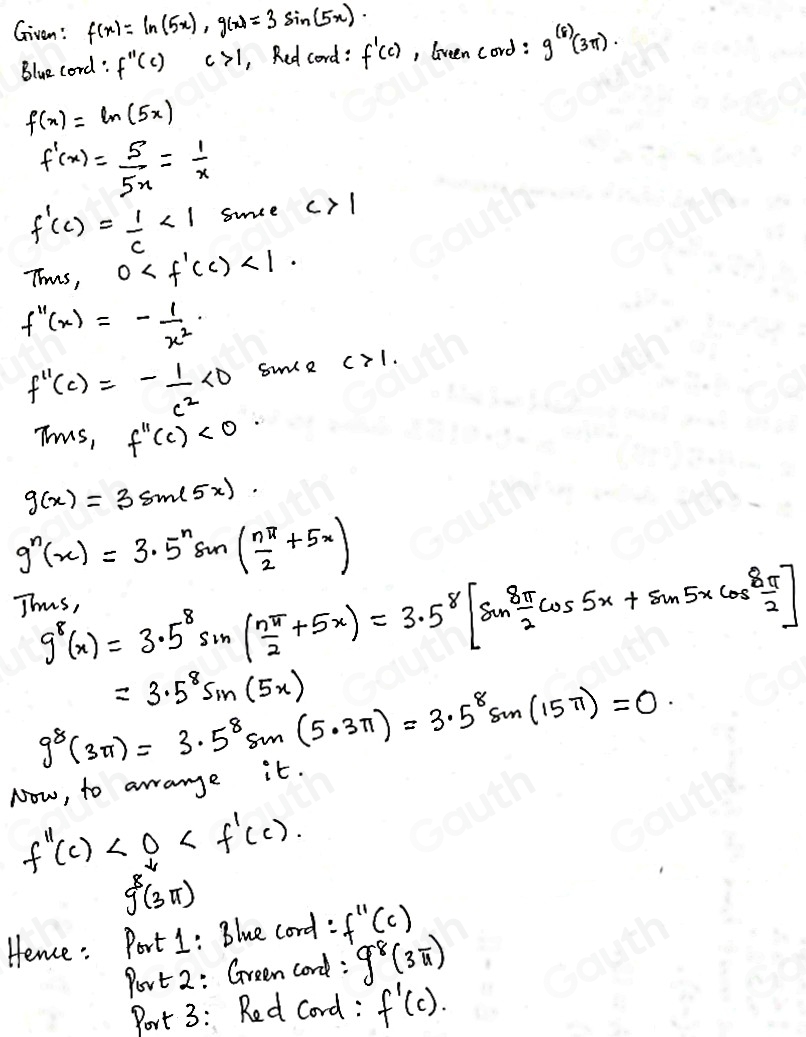 Given: f(x) = ln(5x), g(x) = 3 sin(5x).
Blue cord: f''(c) c>1, Red cord: f'(c), Green cord: g^(8)(3π).
f(x) = ln(5x)
f'(x) = 5/5x = 1/x
f'(c) = 1/c < 1 since c > 1
Thus, 0 < f'(c) < 1.
f''(x) = - 1/x².
f''(c) = - 1/c² < 0 since c > 1.
Thus, f''(c) < 0.
g(x) = 3 sin(5x).
g^n(x) = 3·5^n sin(nπ/2 + 5x)
Thus,
g^8(x) = 3·5^8 sin(nπ/2 + 5x) = 3·5^8 [sin 8π/2 cos 5x + sin 5x cos 8π/2]
= 3·5^8 sin(5x)
g^8(3π) = 3·5^8 sin(5·3π) = 3·5^8 sin(15π) = 0.
Now, to arrange it.
f''(c) < 0 < f'(c).
↓
g^8(3π)
Hence: Port 1: Blue cord: f''(c)
Port 2: Green cord: g^8(3π)
Port 3: Red cord: f'(c).